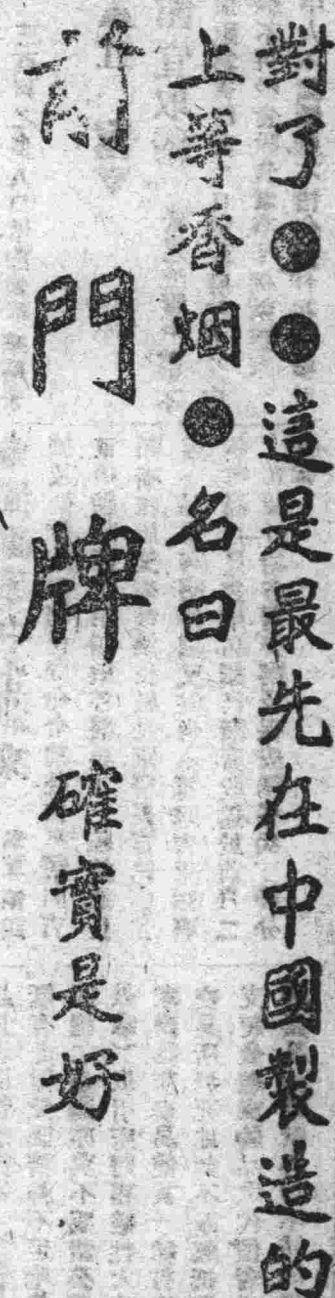 對了●●這是最先在中國製造的
上等香烟●名曰
前門牌 確實是好